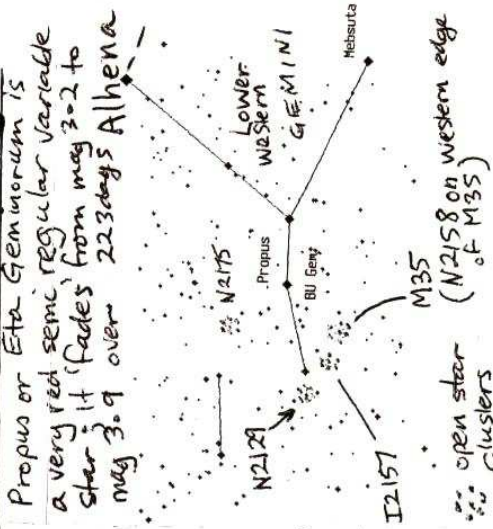 Propus or Eta Geminorum is
a very red semi regular variable
star. It 'fades' from mag 3.2 to
mag 3.9 over 223days
Alhena
Lower
Western
GEMINI
Mebsuta
N2175
Propus
BU Gem
N2129
I2157
M35
(N2158 on western edge
of M35)
open star
clusters